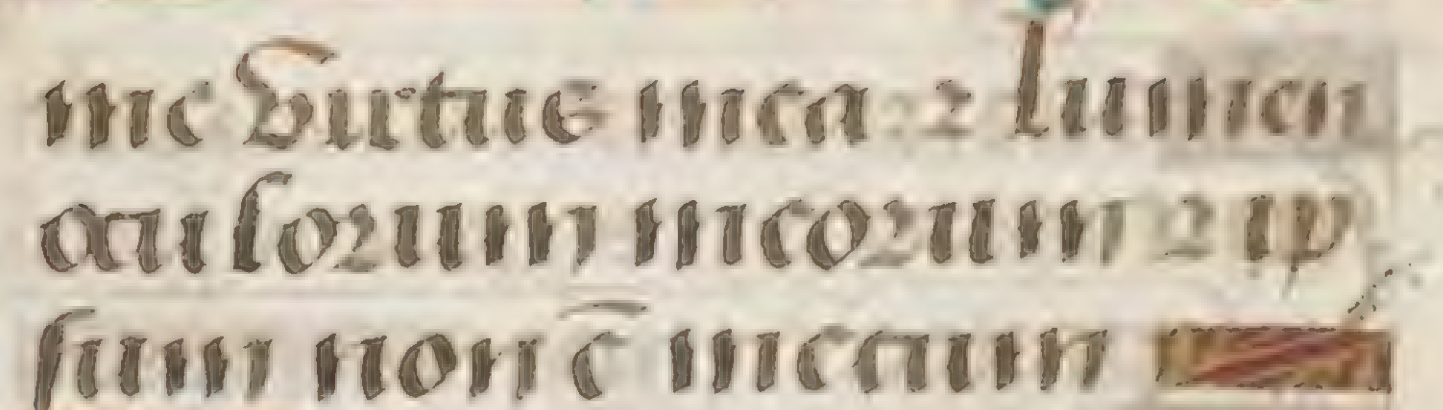 me virtus mea ⁊ lumen
oculorum meorum ⁊ ip
sum non ē mecum